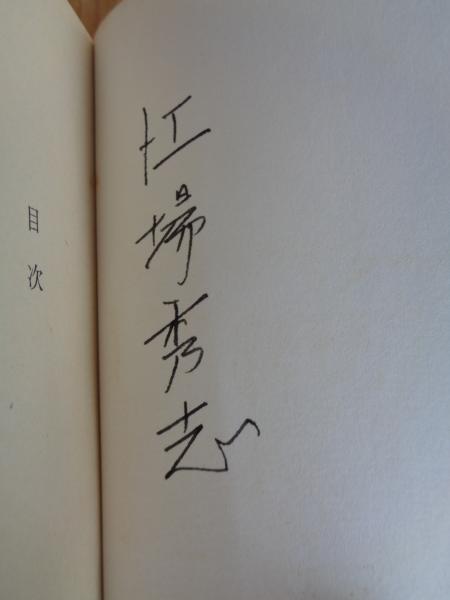 江場秀志
目次